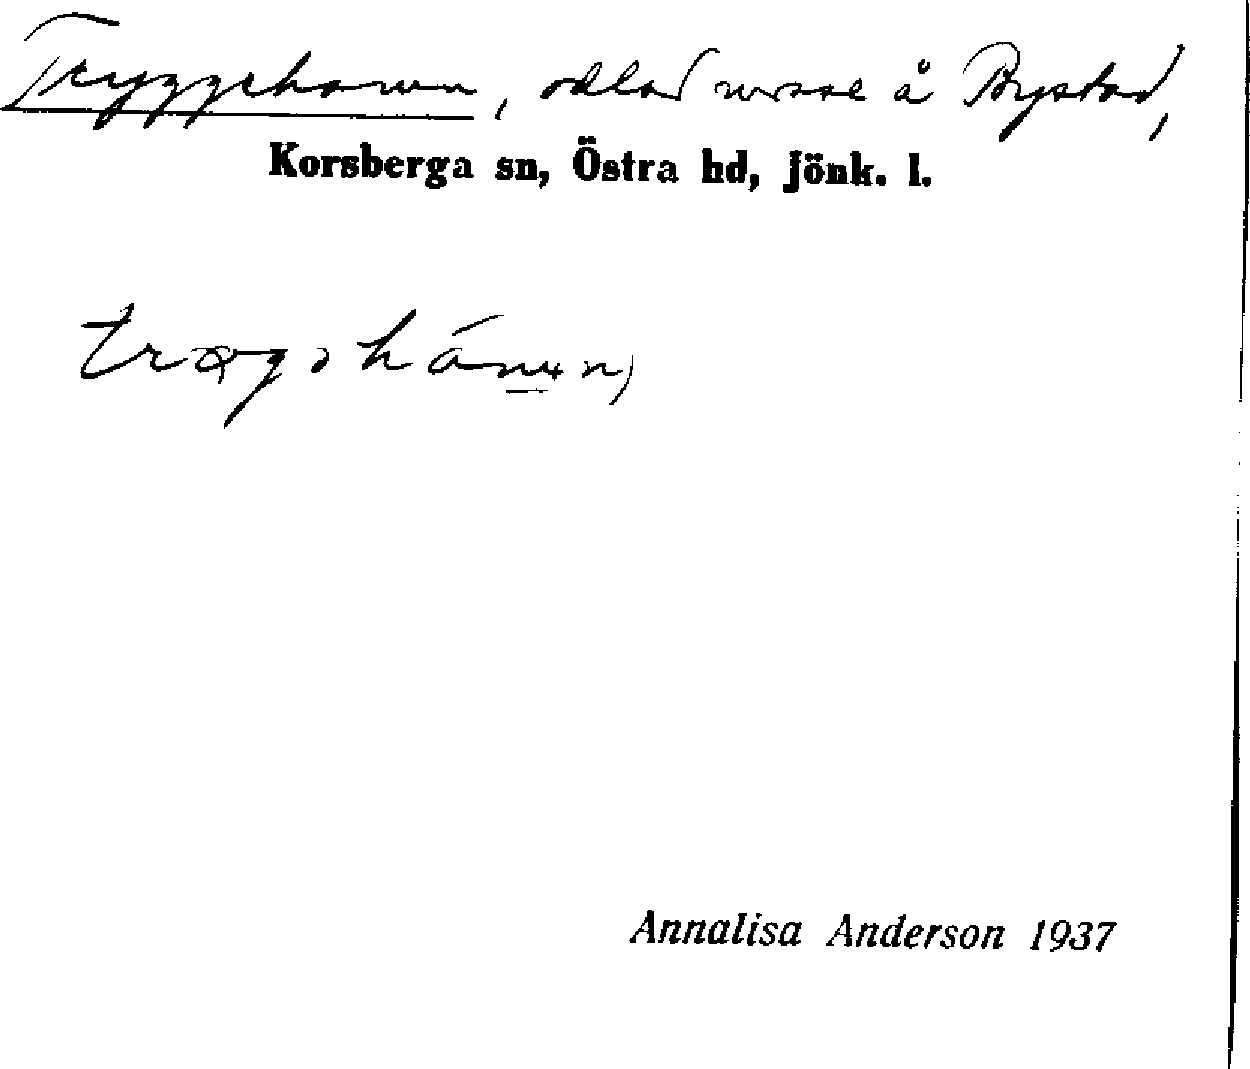 Tryggehamn, odlad mosse å Bystad,
Korsberga sn, Östra hd, Jönk. l.
Annalisa Anderson 1937